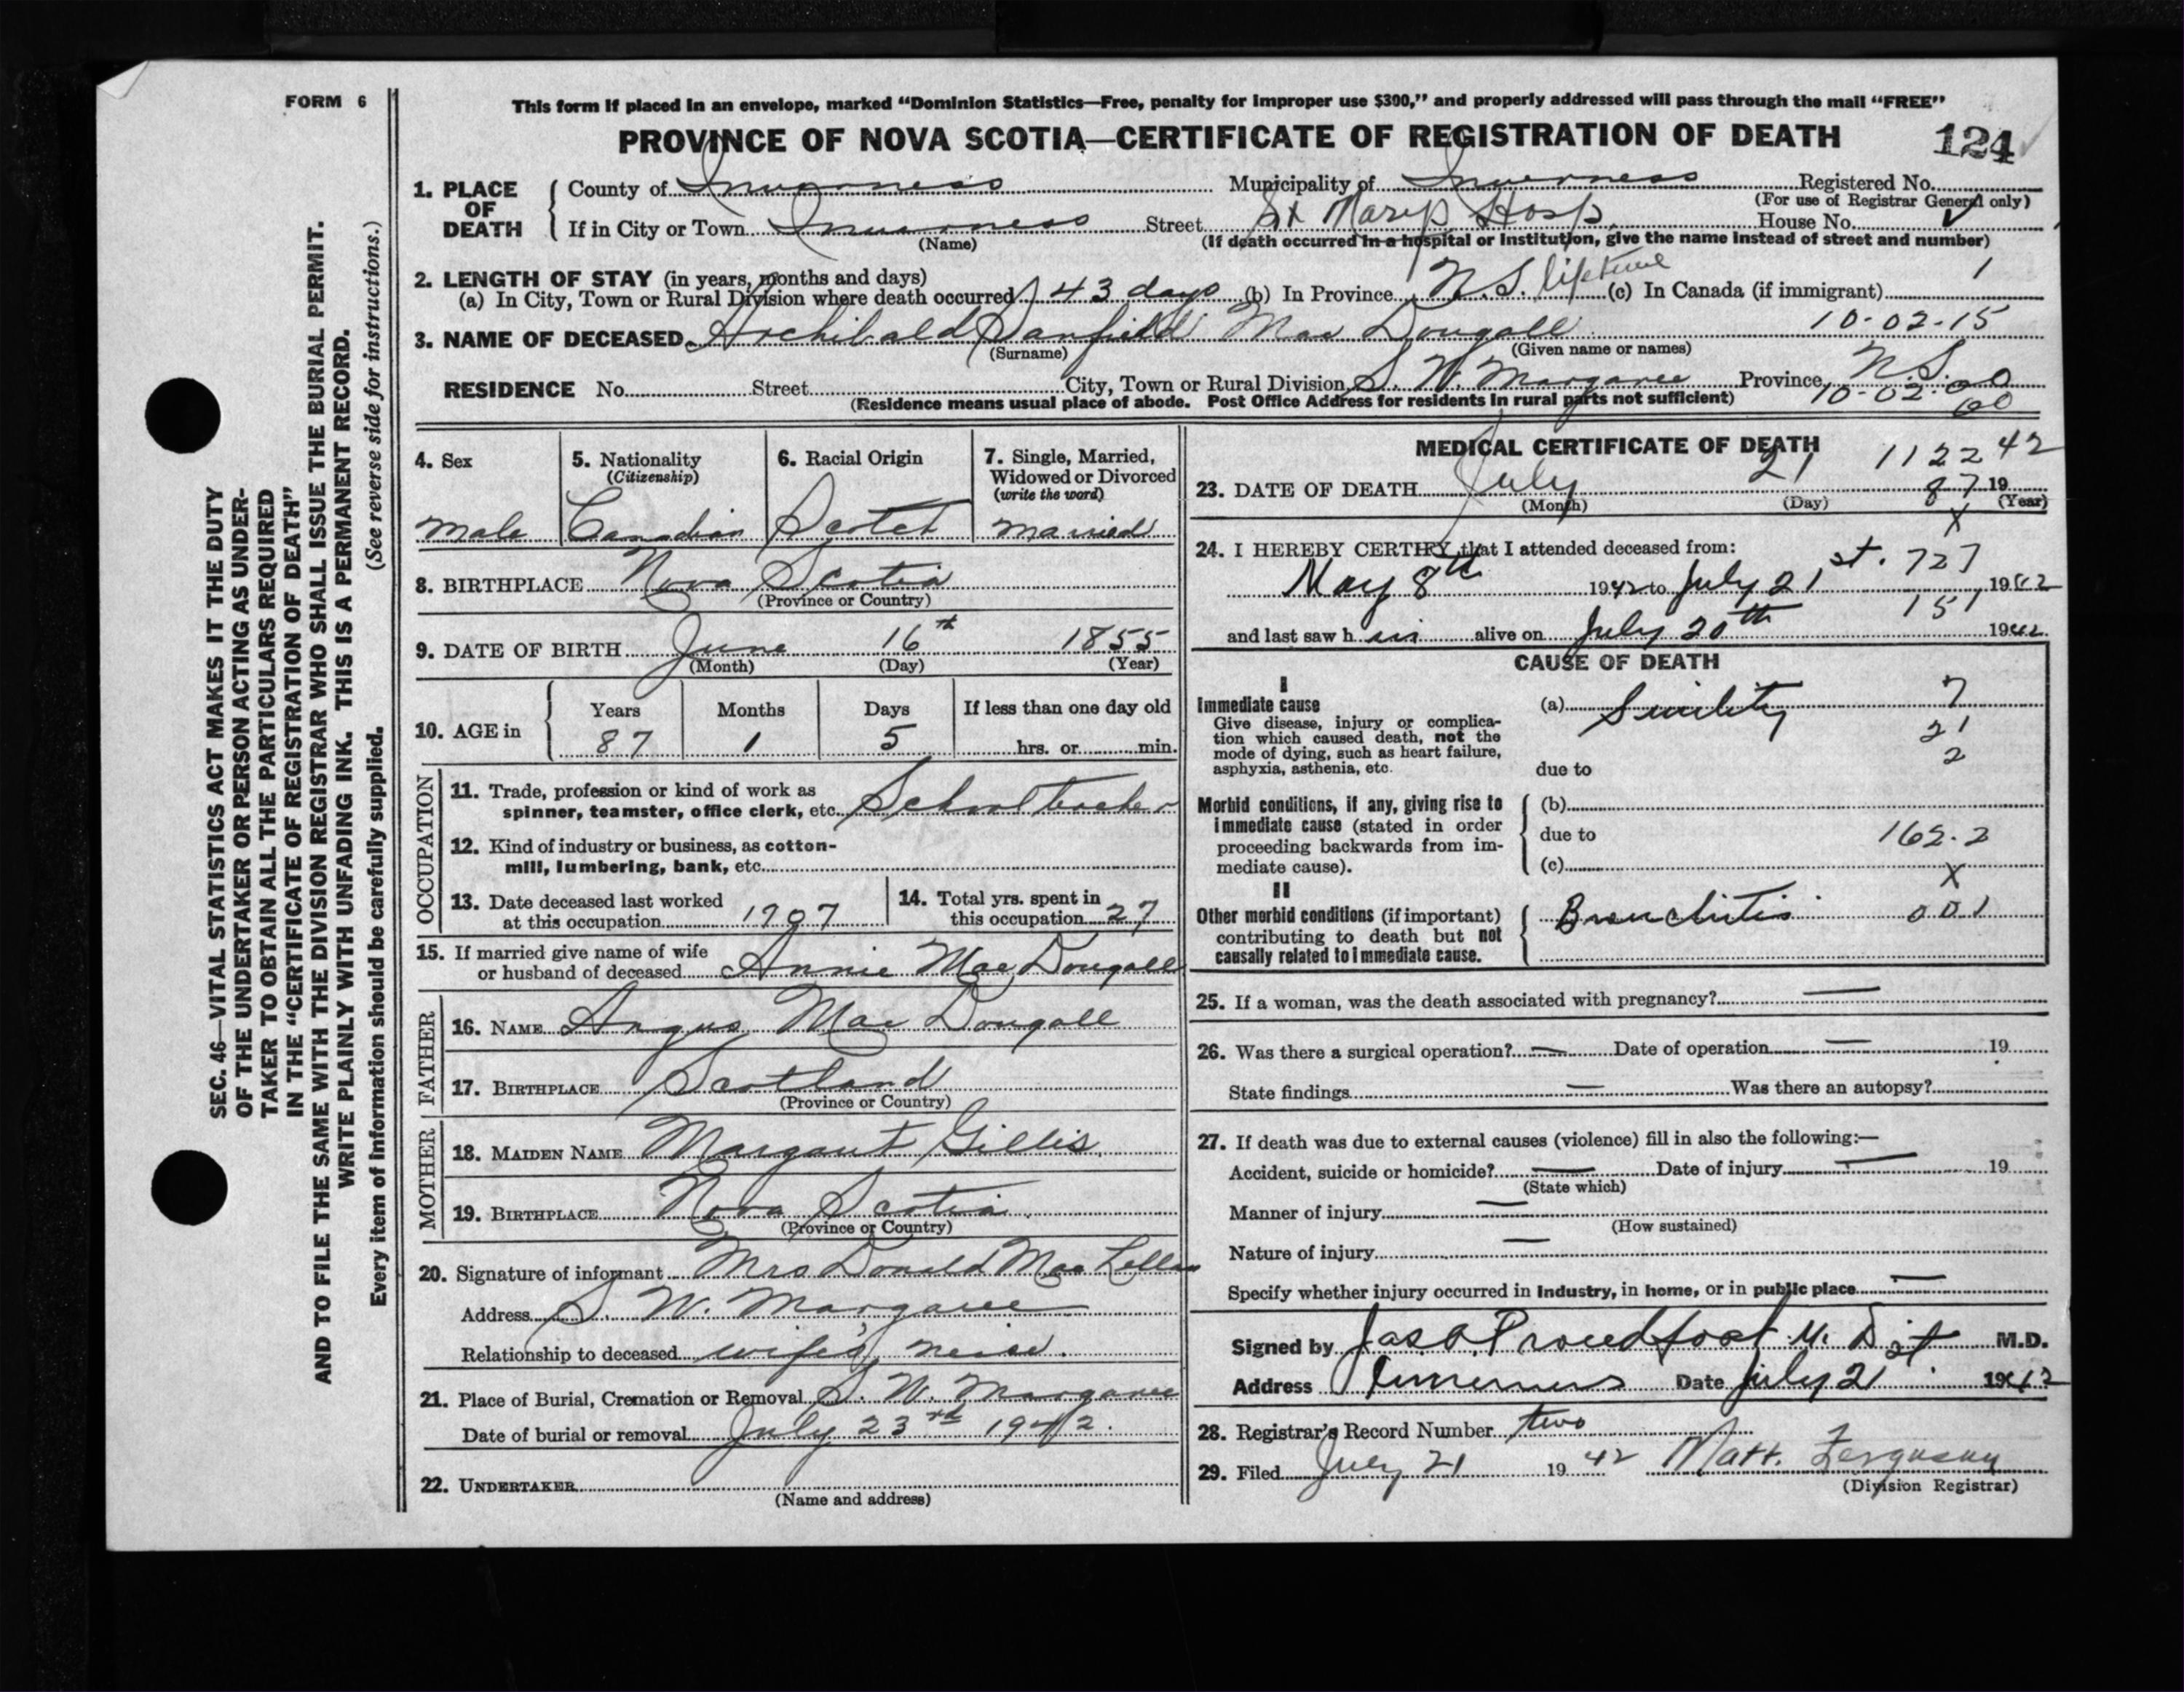 FORM 6
This form if placed in an envelope, marked “Dominion Statistics—Free, penalty for improper use $300,” and properly addressed will pass through the mail “FREE”
PROVINCE OF NOVA SCOTIA—CERTIFICATE OF REGISTRATION OF DEATH
124
SEC. 46—VITAL STATISTICS ACT MAKES IT THE DUTY
OF THE UNDERTAKER OR PERSON ACTING AS UNDER-
TAKER TO OBTAIN ALL THE PARTICULARS REQUIRED
IN THE “CERTIFICATE OF REGISTRATION OF DEATH”
AND TO FILE THE SAME WITH THE DIVISION REGISTRAR WHO SHALL ISSUE THE BURIAL PERMIT.
WRITE PLAINLY WITH UNFADING INK. THIS IS A PERMANENT RECORD.
Every item of information should be carefully supplied. (See reverse side for instructions.)
1. PLACE OF DEATH
County of Inverness Municipality of Inverness Registered No.
(For use of Registrar General only)
If in City or Town Inverness Street St Marys Hosp. House No.
(Name) (If death occurred in a hospital or institution, give the name instead of street and number)
2. LENGTH OF STAY (in years, months and days)
(a) In City, Town or Rural Division where death occurred 43 days (b) In Province N.S. lifetime (c) In Canada (if immigrant) 1
3. NAME OF DECEASED Archibald Sanfield Mac Dougall 10-02-15
(Surname) (Given name or names)
RESIDENCE No. Street City, Town or Rural Division S. W. Margaree Province N.S.
(Residence means usual place of abode. Post Office Address for residents in rural parts not sufficient) 10-02-00
60
4. Sex
male
5. Nationality
(Citizenship)
Canadian
6. Racial Origin
Scotch
7. Single, Married,
Widowed or Divorced
(write the word)
married
8. BIRTHPLACE Nova Scotia
(Province or Country)
9. DATE OF BIRTH June 16th 1855
(Month) (Day) (Year)
10. AGE in
Years Months Days If less than one day old
87 1 5 hrs. or min.
OCCUPATION
11. Trade, profession or kind of work as
spinner, teamster, office clerk, etc. School teacher
12. Kind of industry or business, as cotton-
mill, lumbering, bank, etc.
13. Date deceased last worked
at this occupation 1907
14. Total yrs. spent in
this occupation 27
15. If married give name of wife
or husband of deceased Annie MacDougall
FATHER
16. NAME Angus Mac Dougall
17. BIRTHPLACE Scotland
(Province or Country)
MOTHER
18. MAIDEN NAME Margaut Gillis
19. BIRTHPLACE Nova Scotia
(Province or Country)
20. Signature of informant Mrs Donald MacLellan
Address S. W. Margaree
Relationship to deceased wife's neise.
21. Place of Burial, Cremation or Removal S. W. Margaree
Date of burial or removal July 23rd 1942.
22. UNDERTAKER
(Name and address)
MEDICAL CERTIFICATE OF DEATH
1122 42
23. DATE OF DEATH July 21 87 19
(Month) (Day) (Year)
X
24. I HEREBY CERTIFY that I attended deceased from:
May 8th 1942 to July 21st. 1942
727
151
and last saw h im alive on July 20th 1942
CAUSE OF DEATH
I
Immediate cause
Give disease, injury or complica-
tion which caused death, not the
mode of dying, such as heart failure,
asphyxia, asthenia, etc.
(a) Senility 7
21
2
due to
Morbid conditions, if any, giving rise to
immediate cause (stated in order
proceeding backwards from im-
mediate cause).
(b)
due to 162-2
(c)
X
II
Other morbid conditions (if important)
contributing to death but not
causally related to immediate cause.
Bronchitis 001
25. If a woman, was the death associated with pregnancy? —
26. Was there a surgical operation? — Date of operation — 19
State findings — Was there an autopsy?
27. If death was due to external causes (violence) fill in also the following:—
Accident, suicide or homicide? — Date of injury — 19
(State which)
Manner of injury —
(How sustained)
Nature of injury —
Specify whether injury occurred in industry, in home, or in public place —
Signed by Jas. O. Proudfoot M. D. M.D.
Address Inverness Date July 21st. 1942
28. Registrar's Record Number two
29. Filed July 21 19 42 Matt. Ferguson
(Division Registrar)